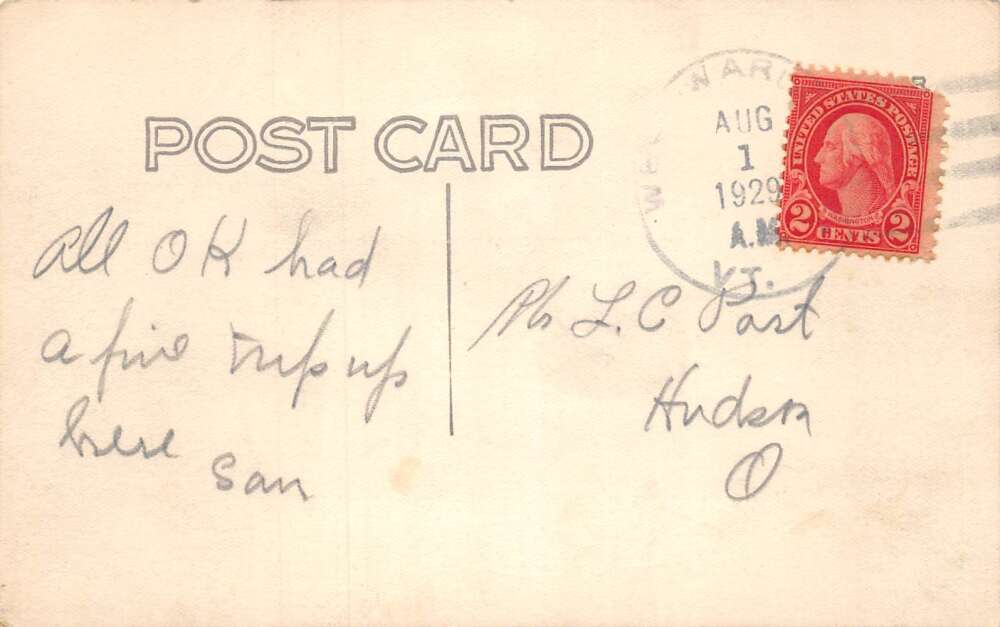 POST CARD
AUG
1
1929
A.M
VT.
UNITED STATES POSTAGE
WASHINGTON
2 CENTS 2
All OK had
a fine trip up
here
San
L. C Post
Hudson
O